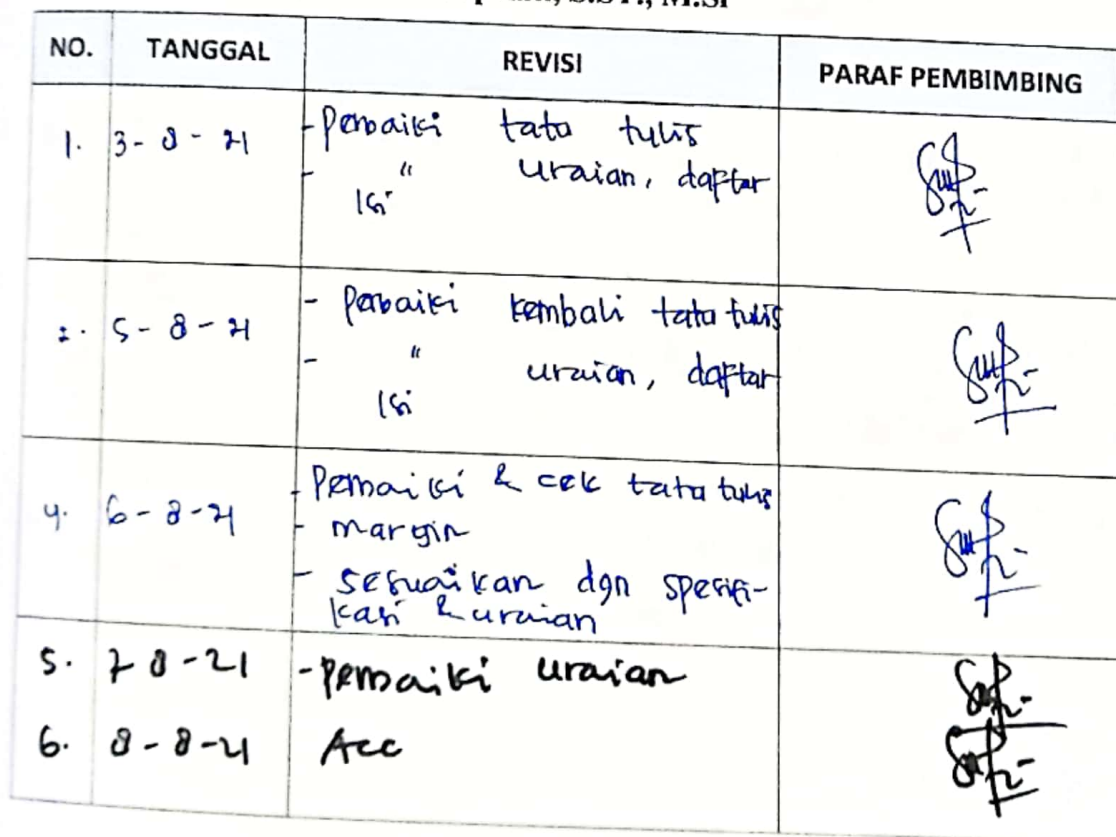 NO. TANGGAL REVISI PARAF PEMBIMBING
1. 3-8-21 - Perbaiki tata tulis
- " uraian, daftar
Isi
2. 5-8-21 - Perbaiki kembali tata tulis
- " uraian, daftar
Isi
4. 6-8-21 - Perbaiki & cek tata tulis
- margin
- sesuaikan dgn spesifi-
kasi & uraian
5. 7 8-21 - Perbaiki uraian
6. 8-8-21 Acc